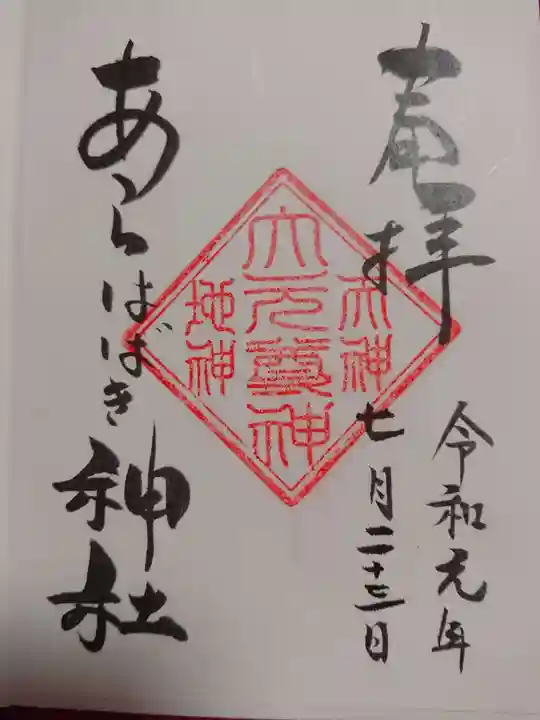 奉拝
令和元年
七月二十三日
天神
大元尊神
地神
あらはばき神社